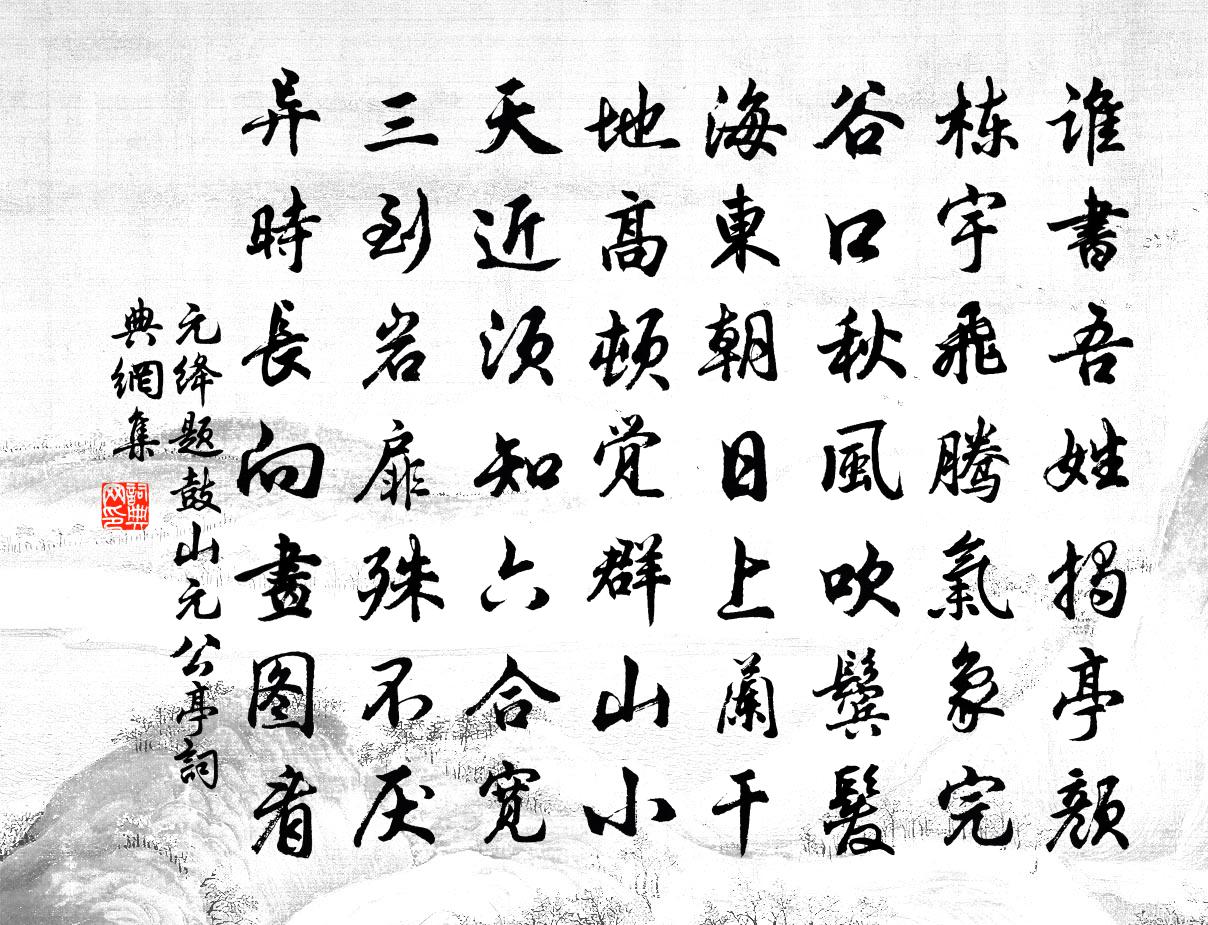 誰書吾姓揭亭顔
栋宇飛騰氣象完
谷口秋風吹鬓髮
海東朝日上蘭干
地髙頓覺群山小
天近須知六合寬
三到岩扉殊不厌
异時長向畫图看
元绛题鼓山元公亭詞
典網集
詞典网印